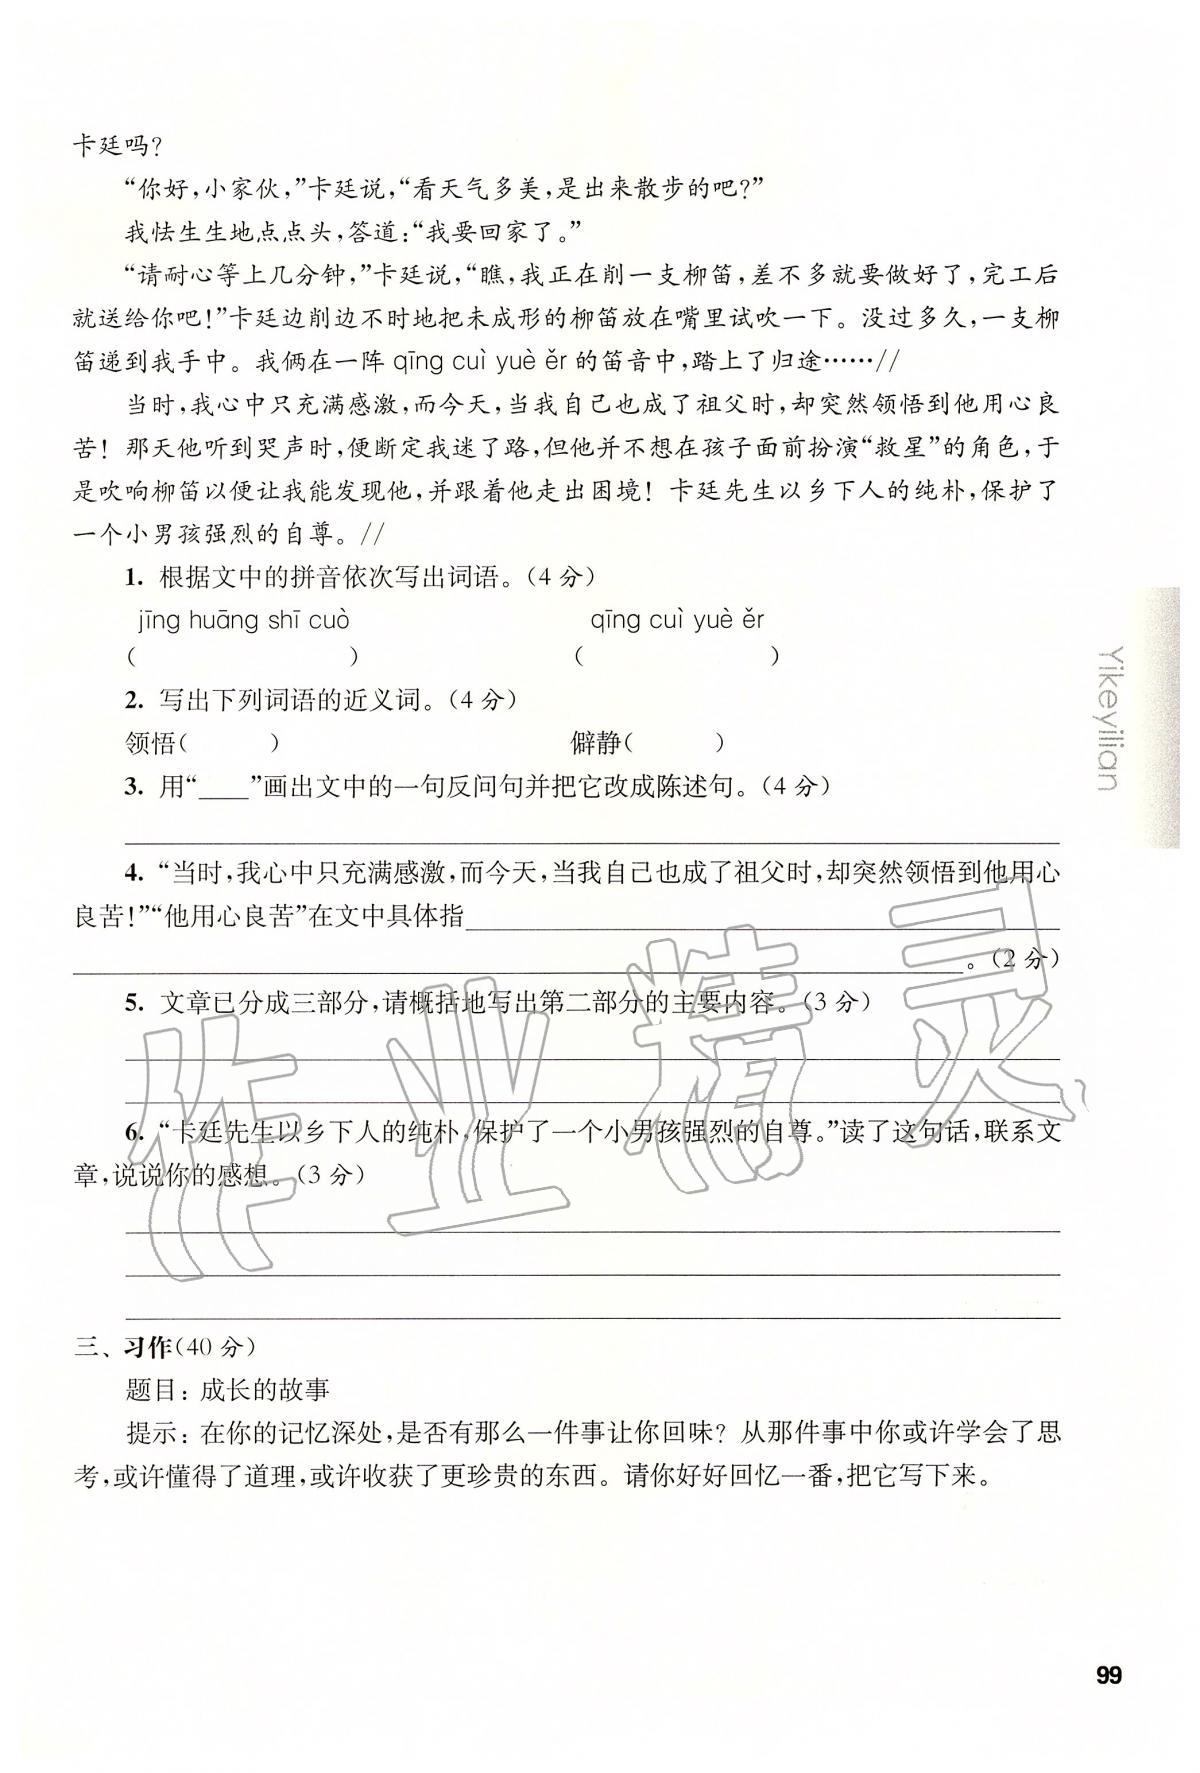 卡廷吗？
“你好，小家伙，”卡廷说，“看天气多美，是出来散步的吧？”
我怯生生地点点头，答道：“我要回家了。”
“请耐心等上几分钟，”卡廷说，“瞧，我正在削一支柳笛，差不多就要做好了，完工后
就送给你吧！”卡廷边削边不时地把未成形的柳笛放在嘴里试吹一下。没过多久，一支柳
笛递到我手中。我俩在一阵 qīng cuì yuè ěr 的笛音中，踏上了归途……//
当时，我心中只充满感激，而今天，当我自己也成了祖父时，却突然领悟到他用心良
苦！那天他听到哭声时，便断定我迷了路，但他并不想在孩子面前扮演“救星”的角色，于
是吹响柳笛以便让我能发现他，并跟着他走出困境！卡廷先生以乡下人的纯朴，保护了
一个小男孩强烈的自尊。//
1. 根据文中的拼音依次写出词语。（4 分）
jīng huāng shī cuò　　qīng cuì yuè ěr
（　　　　）　　（　　　　）
2. 写出下列词语的近义词。（4 分）
领悟（　　）　　僻静（　　）
3. 用“____”画出文中的一句反问句并把它改成陈述句。（4 分）
4. “当时，我心中只充满感激，而今天，当我自己也成了祖父时，却突然领悟到他用心
良苦！”“他用心良苦”在文中具体指____
____。（2 分）
5. 文章已分成三部分，请概括地写出第二部分的主要内容。（3 分）
6. “卡廷先生以乡下人的纯朴，保护了一个小男孩强烈的自尊。”读了这句话，联系文
章，说说你的感想。（3 分）
三、习作（40 分）
题目：成长的故事
提示：在你的记忆深处，是否有那么一件事让你回味？从那件事中你或许学会了思
考，或许懂得了道理，或许收获了更珍贵的东西。请你好好回忆一番，把它写下来。
Yikeyilian
99
作业精灵